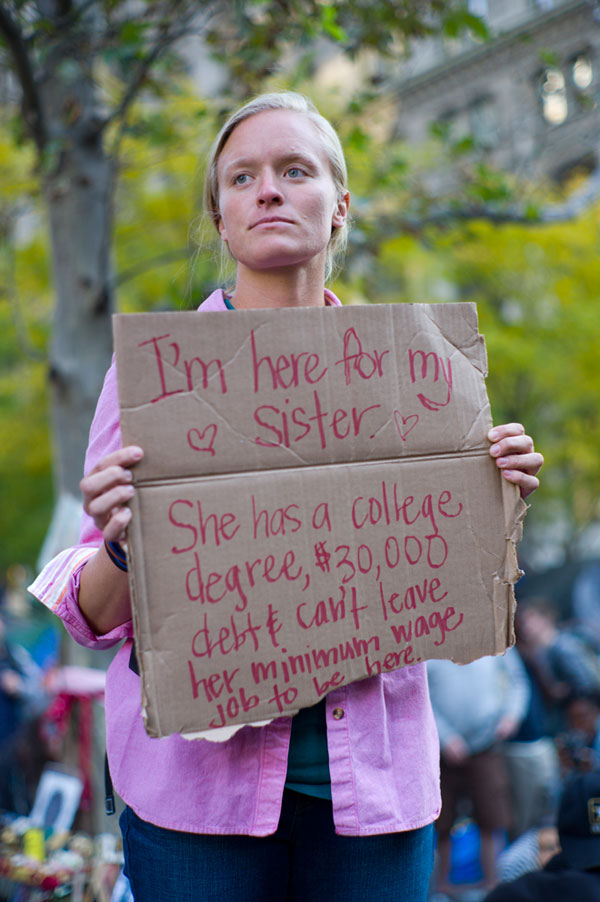 I'm here for my
♡ sister. ♡
She has a college
degree, $30,000
debt & can't leave
her minimum wage
job to be here.